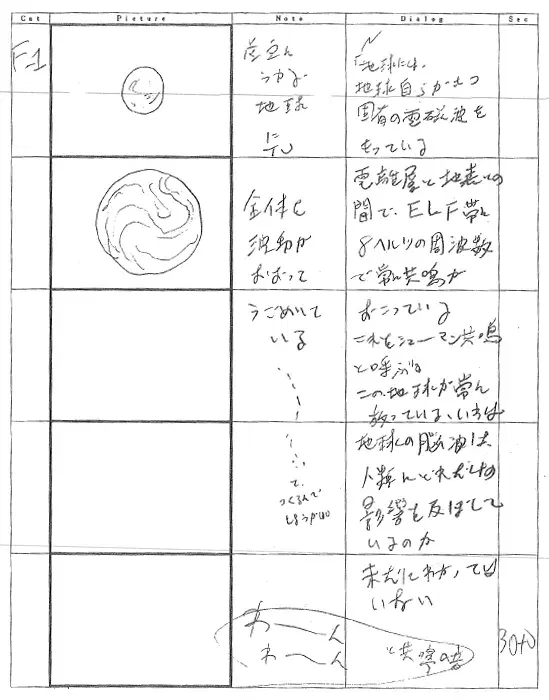 Cut Picture Note Dialog Sec
F-1
虚空に
うかぶ
地球
に
「地球には、
地球自らがもつ
固有の電磁波を
もっている
全体を
波動が
おおって
電離層と地表との
間で、ELF帯に
8ヘルツの周波数
で常に共鳴が
うごめいて
いる
おこっている
これをシューマン共鳴
と呼ぶ。
この地球が常に
放っている、いわば
で、
つくるんで
しょうかね
地球の脳波は、
人類にどれだけの
影響を及ぼして
いるのか
未だにわかってい
いない
わ〜〜ん
わ〜〜ん
と共鳴の音
30+0